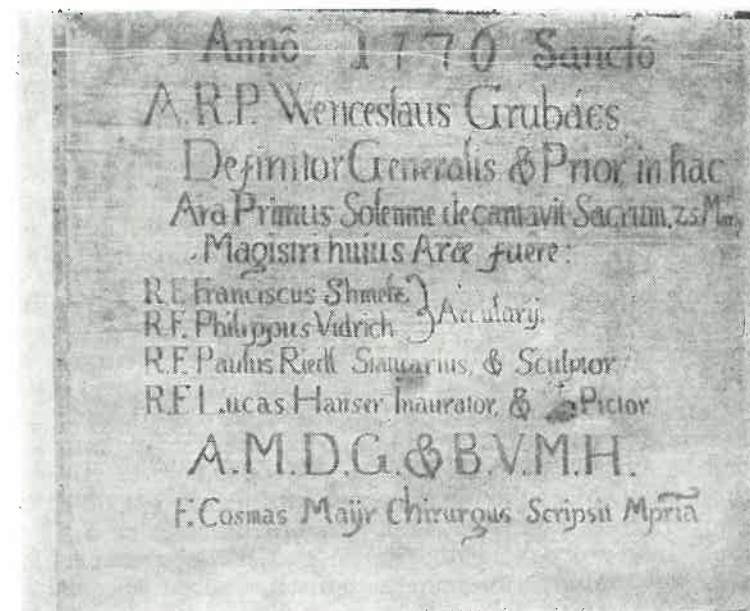 Annô 1770 Sanctô
A.R.P. Wenceslaus Grubács
Definitor Generalis & Prior in hac
Ara Primus Solemne decantavit Sacrum, 25 Mar.
Magistri huius Aræ fuere:
R.F. Franciscus
R.F. Philippus Vidrich } Arcularij.
R.F. Paulus Riedl Statuarius, & Sculptor
R.F. Lucas Hanser Inaurator, & Pictor
A.M.D.G. & B.V.M.H.
F. Cosmas Maÿr Chirurgus Scripsit Mpria